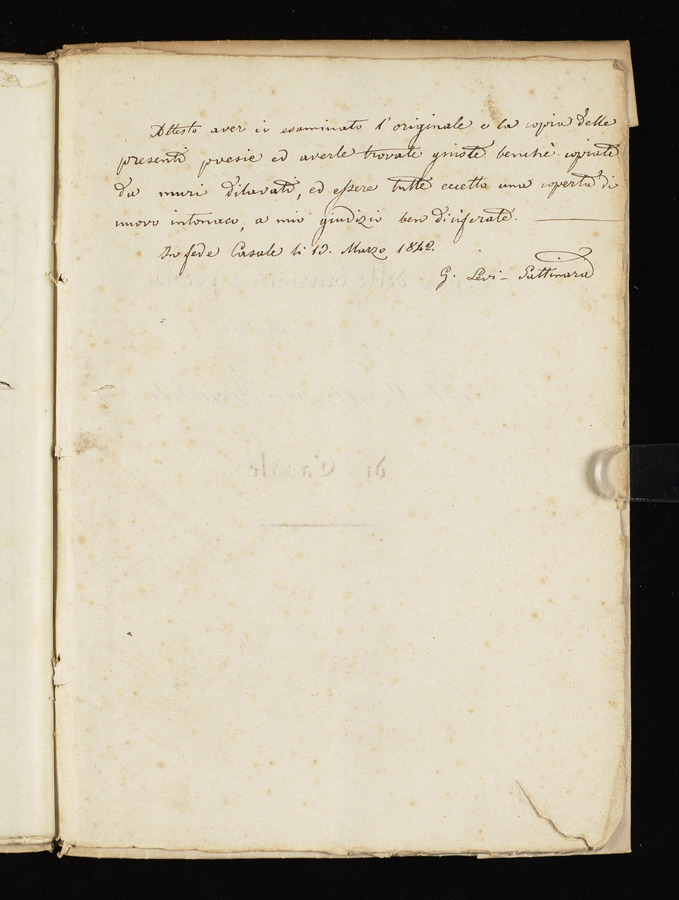 Attesto aver io esaminato l'originale e la copia delle
presenti poesie ed averle trovate giuste benchè copiate
da muri dilavati, ed essere tutte eccetto una coperta di
nuovo intonaco, a mio giudizio ben diciferate.
In fede Casale li 13. Marzo 1842.
G. Levi - Gattinara
di Casale